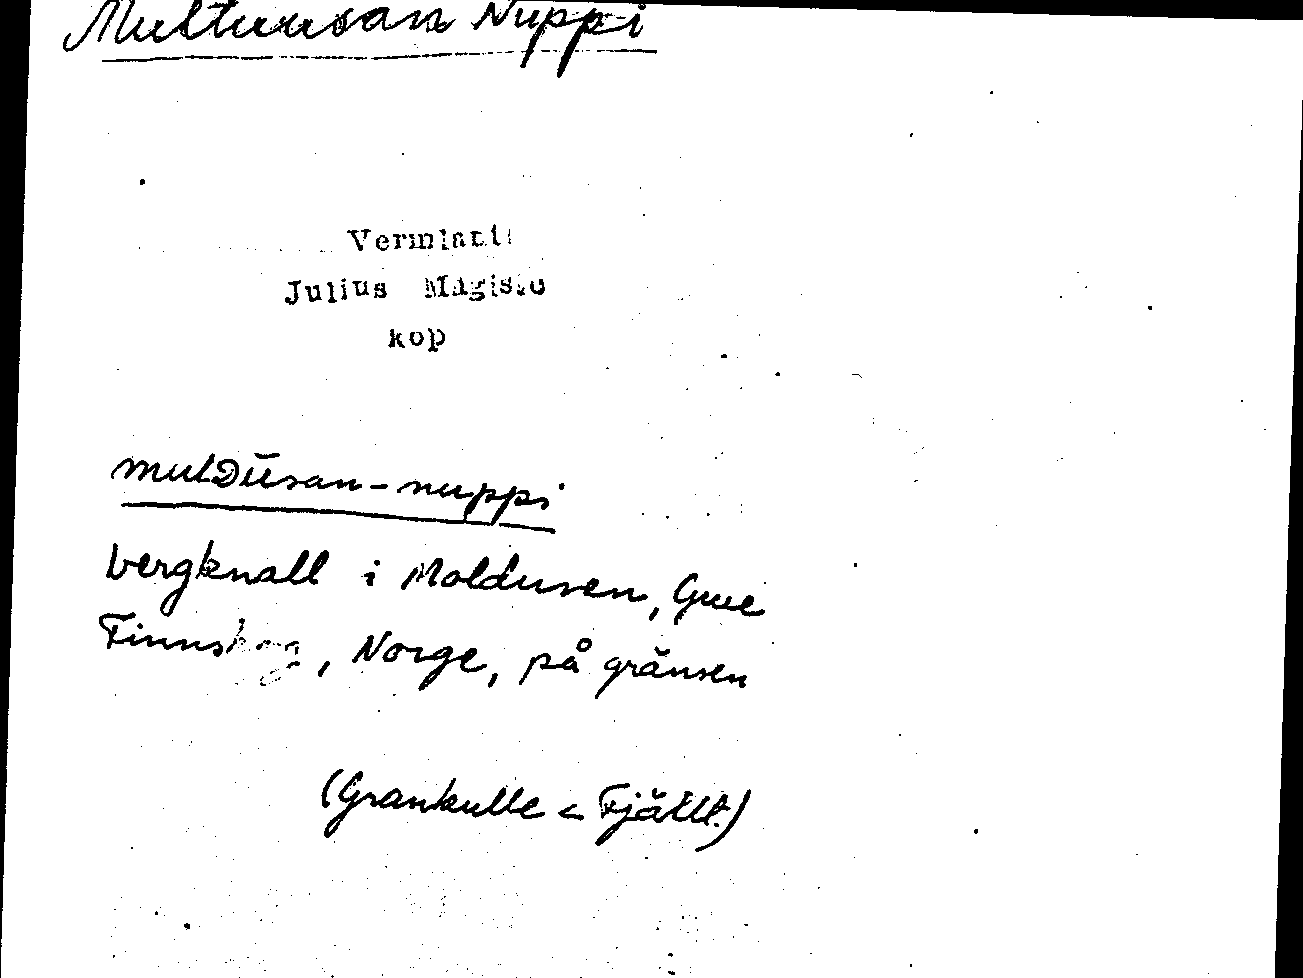 Multuusan Nuppi
Vermlanti
Julius Mägiste
kop
mulDūsan-nuppi
bergknall i Moldusen, Grue
Finnskog, Norge, på gränsen
(Grankulle < Fjällt.)